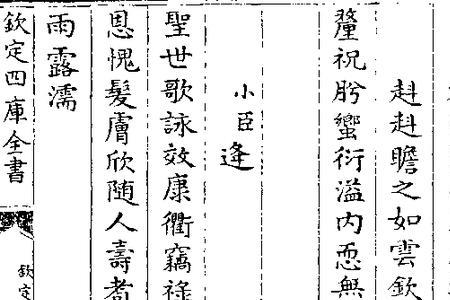 赳赳瞻之如雲欽
釐祝肸蠁衍溢内恧無
小臣逢
聖世歌詠效康衢竊祿
恩愧髮膚欣随人壽者
雨露濡
欽定四庫全書
欽定